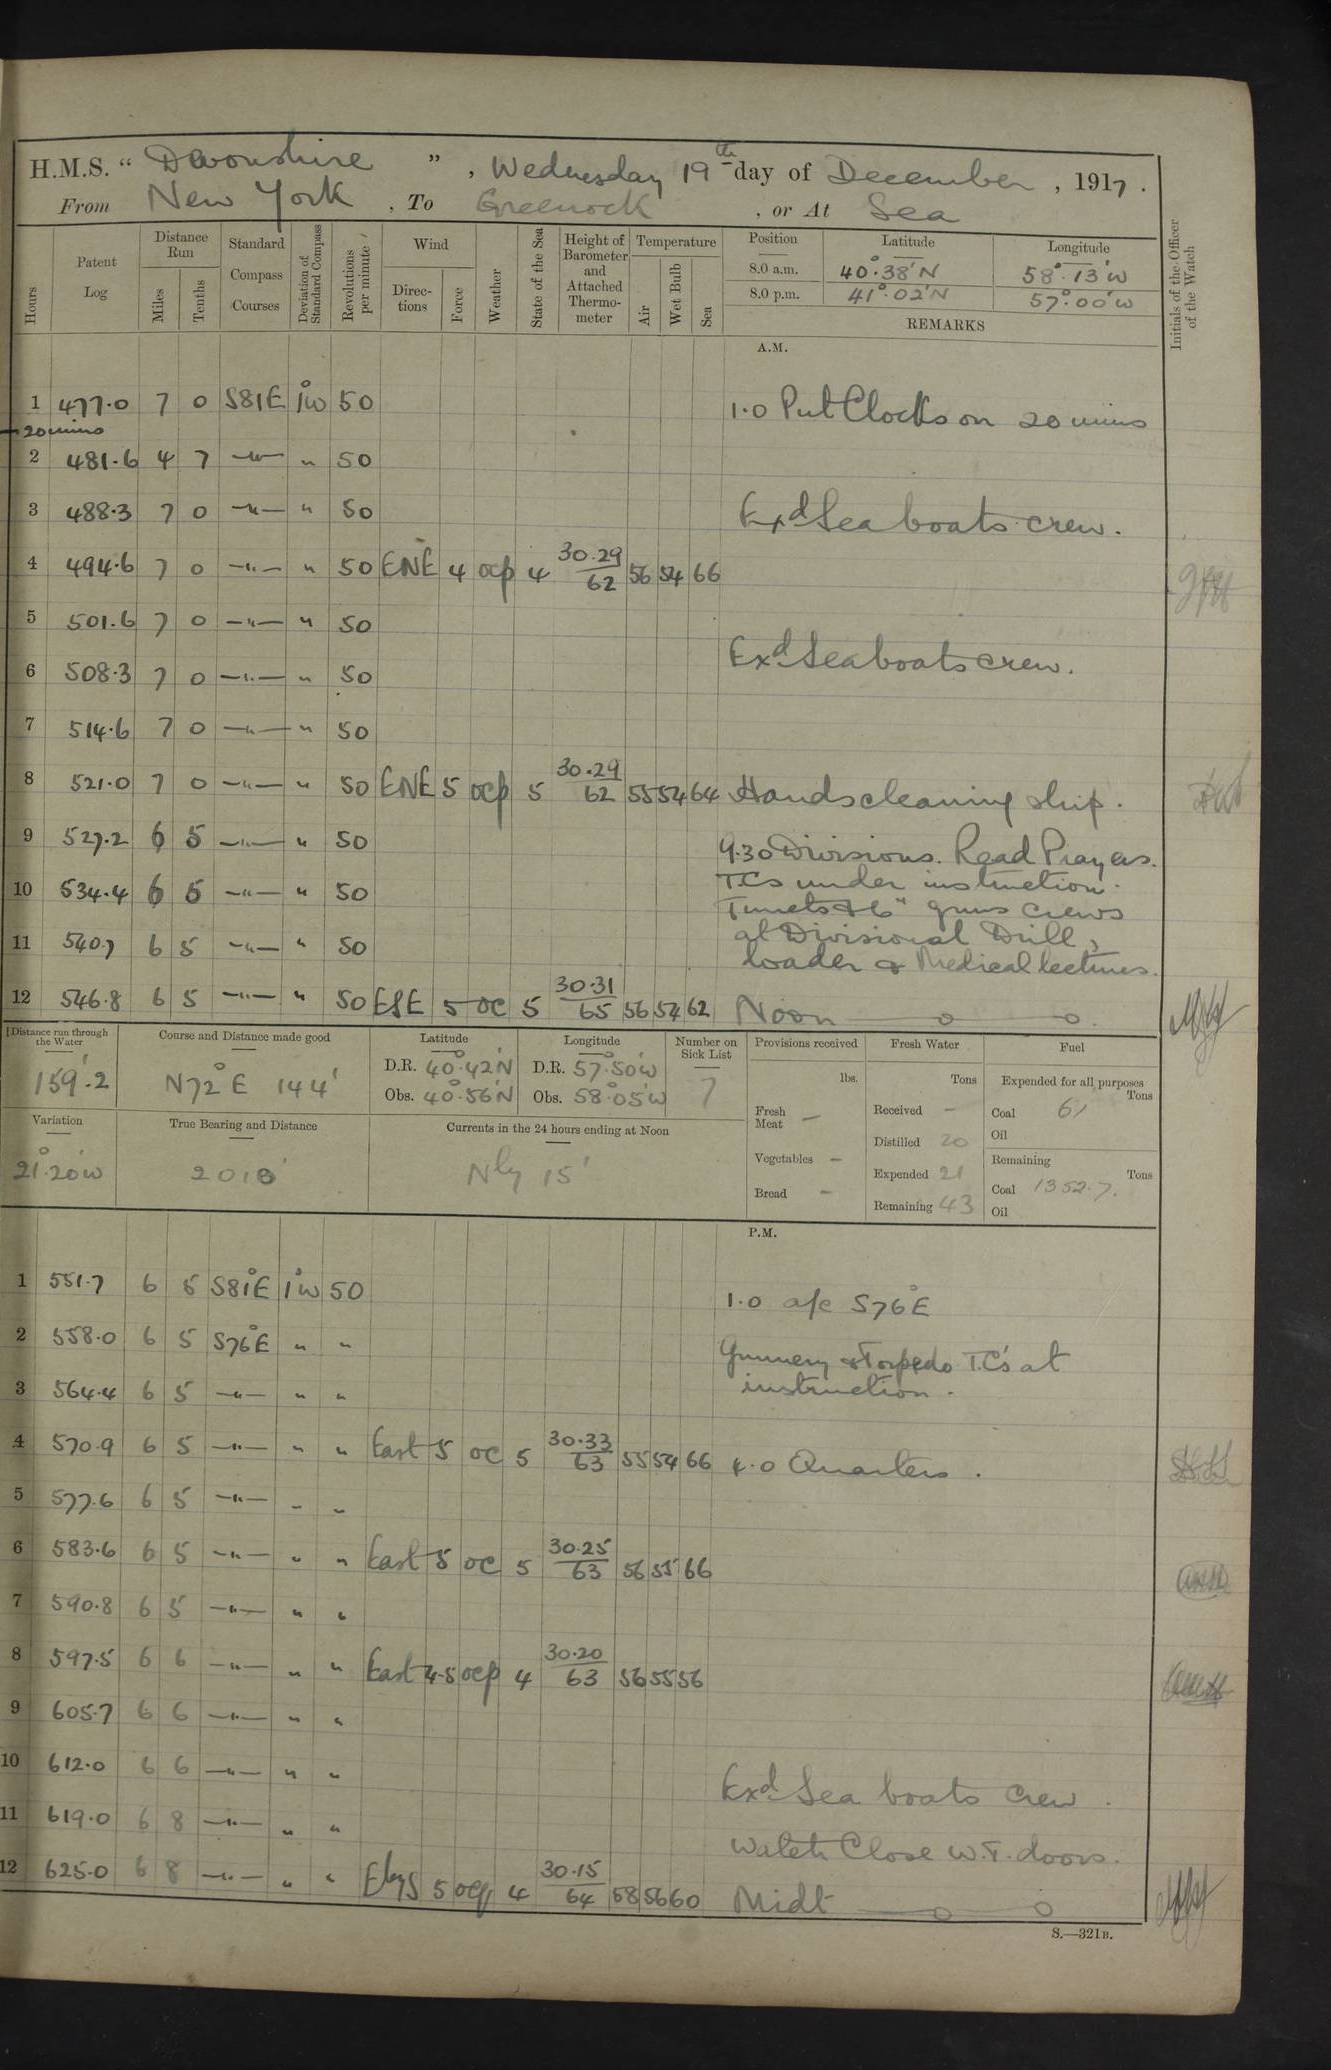 H.M.S. “ Devonshire ” , Wednesday 19th day of December , 1917 .
From New York , To Greenock , or At Sea
Hours
Patent Log
Distance Run
Miles
Tenths
Standard Compass Courses
Deviation of Standard Compass
Revolutions per minute
Wind
Directions
Force
Weather
State of the Sea
Height of Barometer and Attached Thermometer
Temperature
Air
Wet Bulb
Sea
Position Latitude Longitude
8.0 a.m. 40°.38'N 58°.13'W
8.0 p.m. 41°.02'N 57°.00'W
REMARKS
Initials of the Officer of the Watch
A.M.
1 477.0 7 0 S81E 1°W 50 1.0 Put Clocks on 20 mins
20 mins
2 481.6 4 7 —"— " 50
3 488.3 7 0 —"— " 50 Exd Sea boats crew.
4 494.6 7 0 —"— " 50 ENE 4 ocp 4 30.29/62 56 54 66
5 501.6 7 0 —"— " 50
6 508.3 7 0 —"— " 50 Exd Sea boats crew.
7 514.6 7 0 —"— " 50
8 521.0 7 0 —"— " 50 ENE 5 ocp 5 30.29/62 55 54 64 Hands cleaning ship.
9 527.2 6 5 —"— " 50 9.30 Divisions. Read Prayers.
10 534.4 6 5 —"— " 50 T.Cs under instruction.
Turrets & 6" guns crews
11 540.7 6 5 —"— " 50 at Divisional Drill,
loader & Medical lectures.
12 546.8 6 5 —"— " 50 ESE 5 oc 5 30.31/65 56 54 62 Noon
Distance run through the Water
159'.2
Course and Distance made good
N72°E 144'
Latitude
D.R. 40°.42'N
Obs. 40°.56'N
Longitude
D.R. 57°.50'W
Obs. 58°.05'W
Number on Sick List
7
Variation
21°.20'W
True Bearing and Distance
2018'
Currents in the 24 hours ending at Noon
Nly 15'
Provisions received
lbs.
Fresh Meat —
Vegetables —
Bread —
Fresh Water
Tons
Received —
Distilled 20
Expended 21
Remaining 43
Fuel
Expended for all purposes
Tons
Coal 61
Oil
Remaining
Tons
Coal 1352.7.
Oil
P.M.
1 551.7 6 5 S81°E 1°W 50 1.0 a/c S76°E
2 558.0 6 5 S76°E " " Gunnery & Torpedo T.C's at
3 564.4 6 5 —"— " " instruction.
4 570.9 6 5 —"— " " East 5 oc 5 30.33/63 55 54 66 4.0 Quarters.
5 577.6 6 5 —"— " "
6 583.6 6 5 —"— " " East 5 oc 5 30.25/63 56 55 66
7 590.8 6 5 —"— " "
8 597.5 6 6 —"— " " East 4-5 ocp 4 30.20/63 56 55 56
9 605.7 6 6 —"— " "
10 612.0 6 6 —"— " " Exd Sea boats crew.
11 619.0 6 8 —"— " " Watch Close W.T. doors.
12 625.0 6 8 —"— " " EbyS 5 ocp 4 30.15/64 58 56 60 Midt
S.—321B.